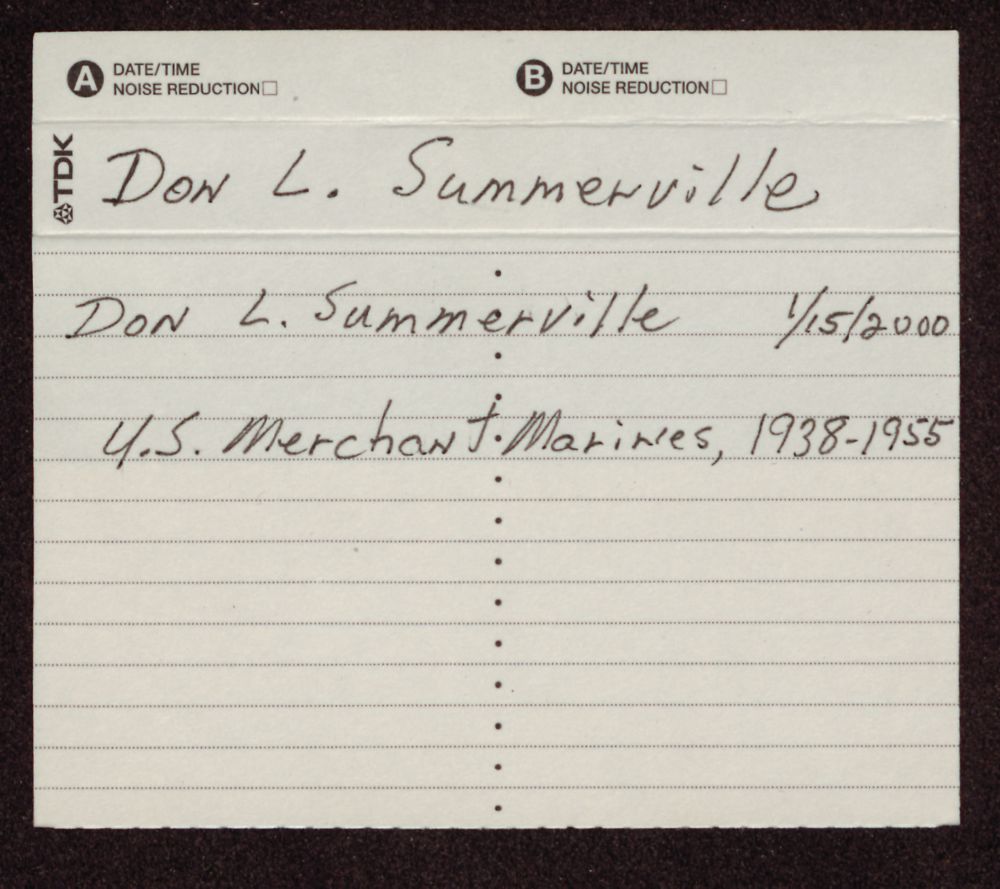 A DATE/TIME
NOISE REDUCTION
B DATE/TIME
NOISE REDUCTION
TDK
Don L. Summerville
Don L. Summerville 1/15/2000
U.S. Merchant Marines, 1938-1955